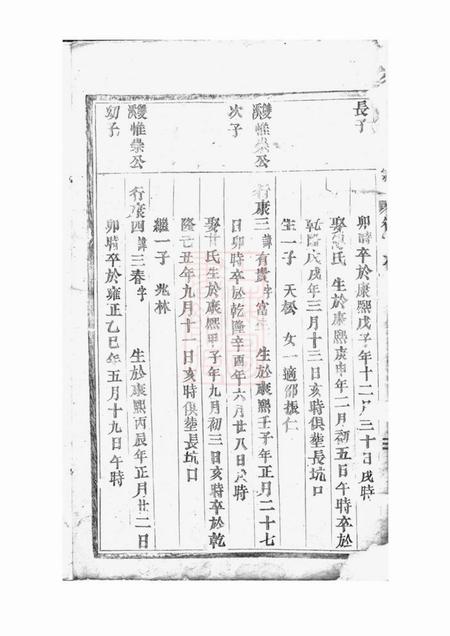 長子
卯時卒於康熙戊子年十二月三十日戌時
娶氏 生於康熙庚申年二月初五日午時卒於
乾隆戌年三月十三日亥時俱塟長坑口
生一子 天松 女一適邵振仁
瓊惟崇公
次子
行康三諱有貴字富生 生於康熙壬子年正月二十七
日卯時卒於乾隆辛酉年六月廿八日時
娶氏生於康熙甲子年九月初三日亥時卒於乾
隆丑年九月十一日亥時俱塟長坑口
繼一子 兆林
瓊惟崇公
幼子
行康四諱三春字 生於康熙丙辰年正月廿二日
卯時卒於雍正乙巳年五月十九日午時